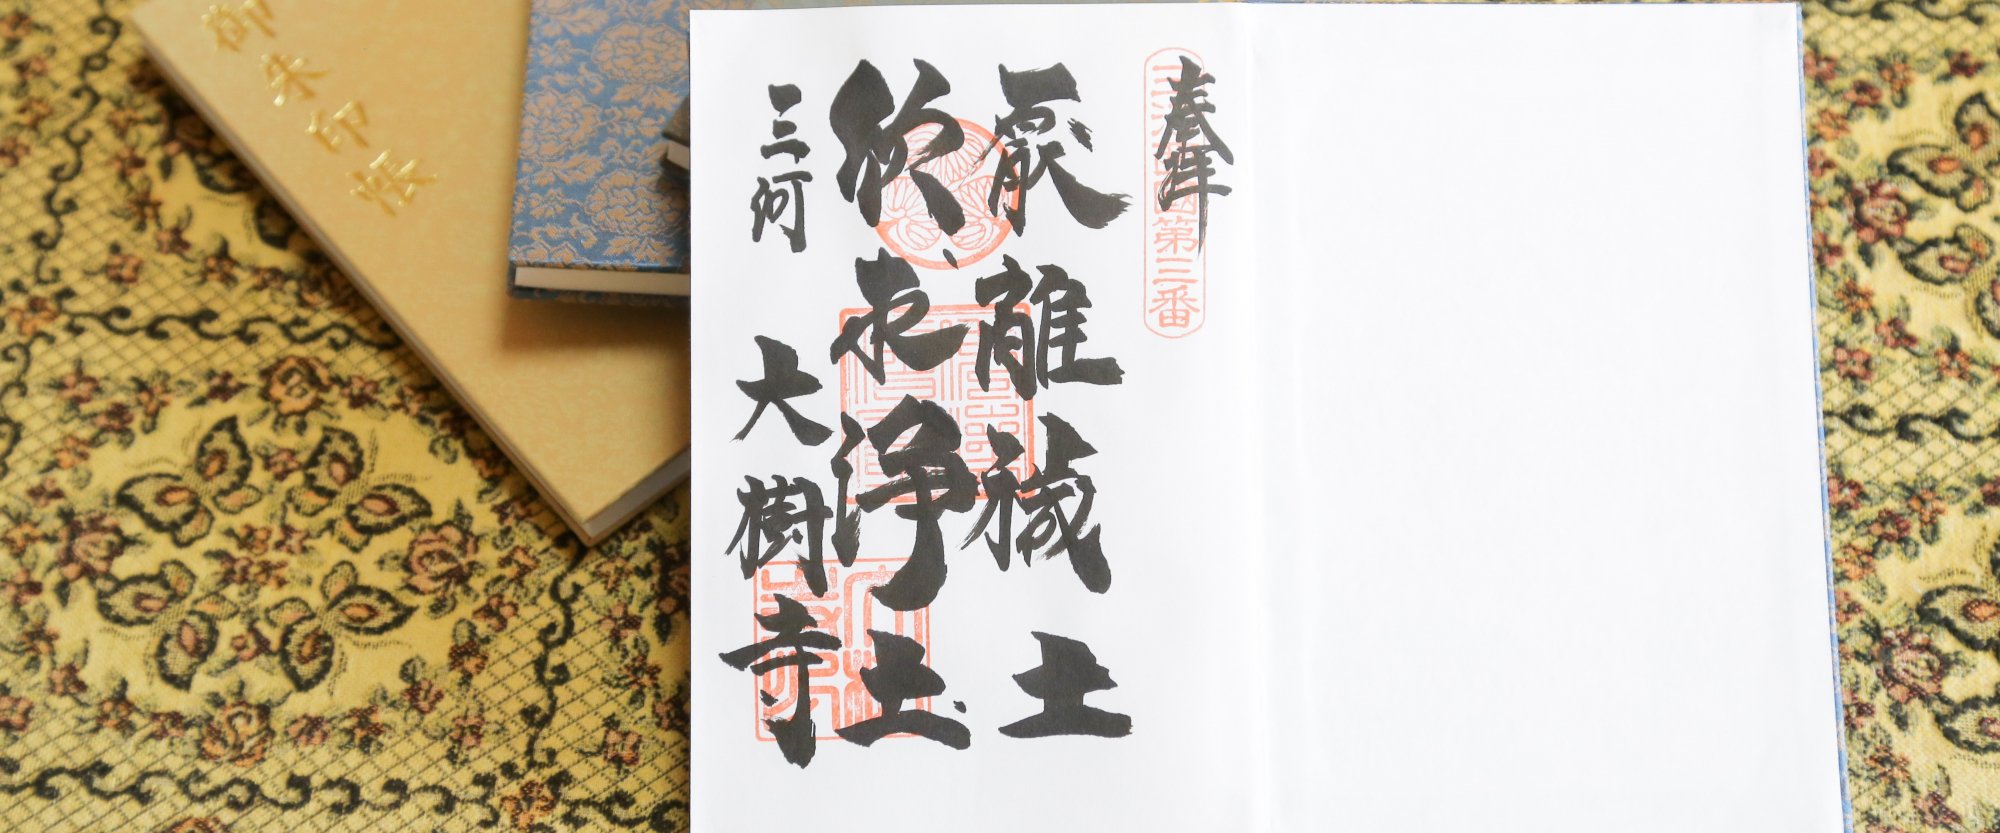 奉拝
第三番
厭離穢土
欣求浄土
三河
大樹寺
御朱印帳